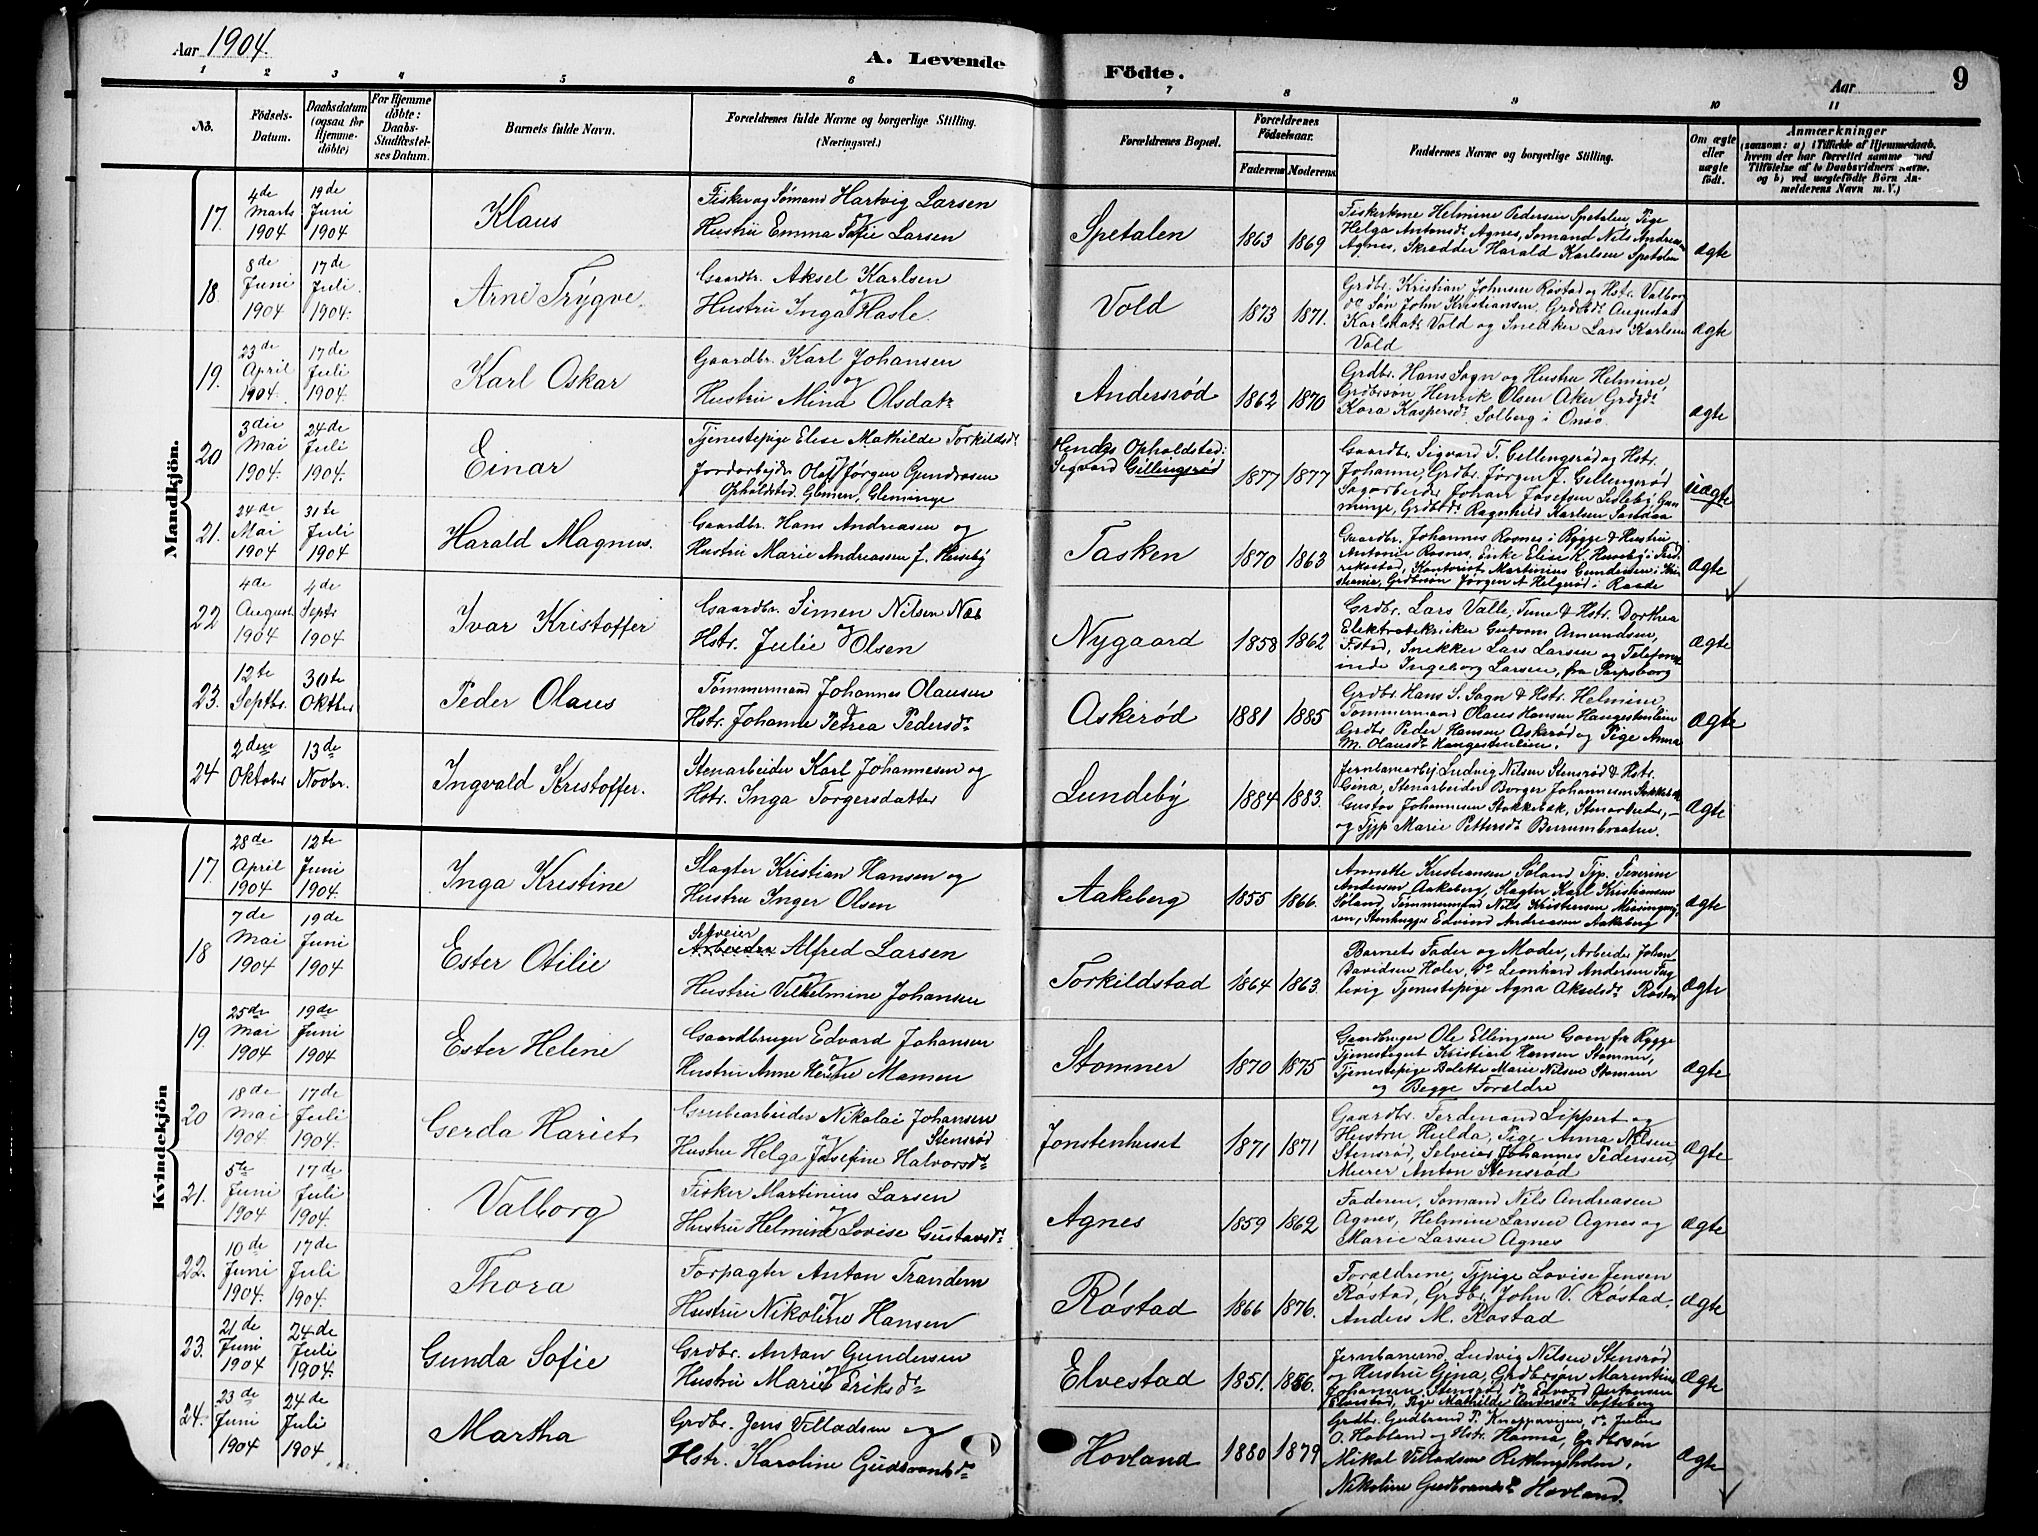 Aar 1904.
A. Levende
Födte.
Aar
9
1 2 3 4 5 6 7 8 9 10 11
No.
Födsels-
Datum.
Daabsdatum
(ogsaa for
Hjemme-
döbte)
For Hjemme
döbte:
Daabs-
Stadfæstel-
ses Datum.
Barnets fulde Navn.
Forældrenes fulde Navne og borgerlige Stilling.
(Næringsvei.)
Forældrenes Bopæl.
Forældrenes
Födselsaar.
Faderens Moderens
Faddernes Navne og borgerlige Stilling.
Om ægte
eller
uægte
født.
Anmærkninger
(saasom: a) i Tilfælde af Hjemmedaab,
hvem der har forrettet samme med
Tilföielse af to Daabsvidners Navne,
og b) ved uægtefödte Börn An-
melderens Navn m. V.)
Mandkjön.
17.
4de
Marts
1904
19de
Juni
1904
Klaus
Fisker og Sømand Hartvig Larsen
og
Hustru Emma Sofie Larsen
Spetalen
1863 1869
Fiskerkone Helmine Pedersen Spetalen, Pige
Helga Antonsdr. Agnes, Sømand Nils Andreasen
Agnes, Skrædder Harald Karlsen Spetalen
ægte
18
8de
Juni
1904
17de
Juli
1904.
Arne Trygve
Gaardbr. Aksel Karlsen
og
Hustru Inga Hasle.
Vold
1873 1871.
Grdbr. Kristian Johnsen Røstad og Hstr. Valborg
do Søn John Kristiansen, Augustad
Vold og Snekker Lars Karlsen
Vold
ægte
19.
23de
April
1904.
17de
Juli
1904.
Karl Oskar
Gaardbr. Karl Johansen
og
Hustru Mina Olsdatr
Andersrød
1862 1870
Grdbr. Hans Sogn og Hustru Helmine,
Grdbrsøn Henrik Olsen Aker
Kora Kaspersdr. Solberg i Onsø.
ægte
20
3die
Mai
1904.
24de
Juli
1904.
Einar
Tjenestepige Elise Mathilde Torkildsdr.
og
Jordarbeidr Olaf Jørgen Gundrosen
Opholdsted. Glemen, Glemminge
Hendes Opholdsted:
Sigvard Gillingsrød
1877 1877
Gaardbr. Sigvard T. Gillingsrød og Hstr.
Johanne, Grdbr. Jørgen J. Gellengsrød
Johan Josefsen Lisleby
Ragnhild Karlsen
uægte
21.
24de
Mai
1904
31te
Juli
1904
Harald Magnus.
Gaardbr. Hans Andreasen og
Hustru Marie Andreassen f. Huseby
Tasken
1870 1863
Gaardbr. Johannes Rosnes i Rygge & Hustru
Antonie Rosnes, Enke Elise K. Huseby i Fred-
rikstad, Kontorist Martinius Gundersen i Kri-
stiania, Grdbrsøn Jørgen A Helgerød i Raade
ægte
22
4de
August
1904
4de
Septr
1904
Ivar Kristoffer
Gaardbr. Simen Nilsen Næs
og
Hstr. Julie Olsen
Nygaard
1858 1862
Grdbr. Lars Valle, Tune & Hstr. Dorthea
Elektrotekniker Amundsen,
Fstad, Snekker Lars Larsen og Telefonist-
inde Ingeborg Larsen, fra Sarpsborg
ægte
23.
12te
Septbr.
30te
Oktber
Peder Olaus
Tømmermand Johannes Olausen
Hstr. Johanne Petrea Pedersdr
Askerød
1881 1885
Grdbr. Hans S. Sogn & Hstr. Helmine,
Tømmermand Olaus Hansen Haugestenlien
Grdbr Peder Hansen Askerød og Pige Anna
M. Olausdr Haugestenlien.
ægte
24
2den
Oktober
13de
Novbr.
Ingvald Kristoffer.
Stenarbeider Karl Johannesen og
Hstr. Inga Torgersdatter
Lundeby
1884 1883.
Jernbanearbej. Ludvig Nilsen Stensrød & Hstr.
Gina, Stenarbeider Borger Johannesen Stokkebæk
Gustav Johannesen Stokkebæk, Stenarbeider,
og Tjp Marie Pettersdr
ægte
Kvindekjön
17.
28de
April
1904
12te
Juni
1904.
Inga Kristine
Slagter Kristian Hansen og
Hustru Inger Olsen
Aakeberg
1855 1866.
Annette Kristiansen Søland, Tjp. Severine
Andersen Aakeberg, Slagter Karl Kristiansen
Søland, Tømmermand Nils Kristensen Missingmy-
ren, Stenhugger Edvind Andreasen Aakeberg
ægte
18
7de
Mai
1904
19de
Juni
1904
Ester Otilie
Selveier
Arbeider Alfred Larsen
og
Hustru Vilhelmine Johansen
Torkildstad
1864 1863.
Barnets Fader og Moder, Arbeider Johan
Davidsen Holer, do Leonhard Andersen Fug-
levig Tjenestepige Agna Akselsdr. Røstad
ægte
19.
25de
Mai
1904
19de
Juni
1904
Ester Helene
Gaardbruger Edvard Johansen
og
Hustru Anne Hansen
Stomner
1870 1875
Gaardbruger Ole Ellingsen Goen fra Rygge
Tjenestegut Kristian Hansen Stomner,
Tjenestepige Bolette Marie Nilsen Stomner
og Begge Forældre
ægte
20
18de
Mai
1904.
17de
Juli
1904.
Gerda Hariet
Grubearbeider Nikolai Johansen
Stensrød
og
Hustru Helga Josefine Halvorsdr
Jonstenhuset
1871 1871
Gaardbr. Ferdinand Lippert og
Hustru Hulda, Pige Anna Nilsen
Stensrød, Selveier Johannes Pedersen,
Murer Anton Stensrød
ægte
21.
5te
Juni
1904
17de
Juli
1904.
Valborg
Fisker Martinius Larsen
og
Hustru Helmine Lovise Gustavsdr
Agnes
1859 1862
Faderen, Sømand Nils Andreasen
Agnes, Helmine Larsen Agnes og
Marie Larsen Agnes
ægte
22.
10de
Juni
1904.
17de
Juli
1904.
Thora
Forpagter Anton Trandem
og
Hustru Nikoline Hansen
Røstad
1866 1876.
Forældrene, Tjpige Lovise Jensen
Røstad, Grdbr. John V. Røstad,
Anders M. Røstad
ægte
23.
21de
Juni
1904
24de
Juli
1904.
Gunda Sofie
Grdbr. Anton Gundersen
og
Hustru Marie Eriksdr
Elvestad
1851. 1856.
Jernbanemd. Ludvig Nilsen Stensrød
og Hustru Gina, Grdbrsøn Marentius
Johansen Stensrød, do Edvard Antonsen
Elvestad, Pige Mathilde Andersdr Tofteberg
ægte
24.
23de
Juni
1904
24de
Juli
1904
Martha
Grdbr. Jens Villadsen og
Hstr. Karoline Gudbrandsdr
Hovland
1880 1879
Grdbr. Gudbrand P. do Julius
O. Hobland og Hstr. Hanna, Grdbrsøn
Mikal Villadsen
Nikoline Gudbrandsdr Hovland.
ægte